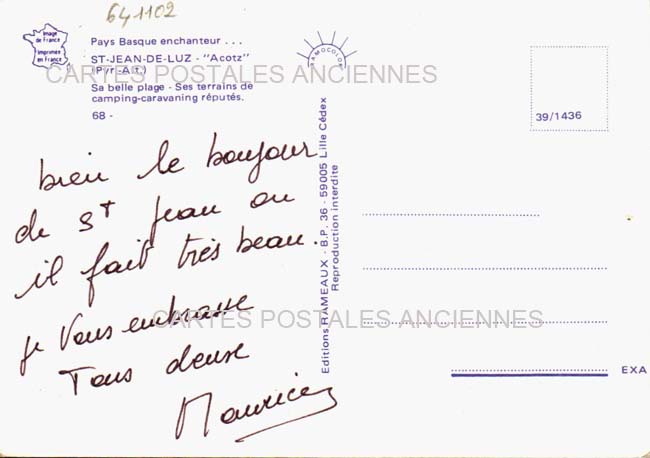 641102
Image
de France
Imprimée
en France
Pays Basque enchanteur . . .
ST-JEAN-DE-LUZ - "Acotz"
(Pyr.-Atl.)
Sa belle plage - Ses terrains de
camping-caravaning réputés.
68 -
RAMOCOLOR
39/1436
CARTES POSTALES ANCIENNES
bien le bonjour
de St Jean ou
il fait très beau.
je Vous embrasse
Tous deuse
Maurice
Editions RAMEAUX - B.P. 36 - 59005 Lille Cédex
Reproduction interdite
CARTES POSTALES ANCIENNES
EXA